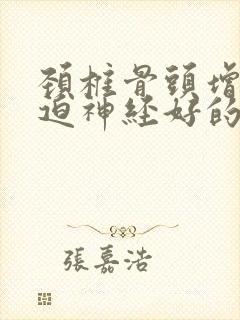 頚椎骨頭增
迫神経好的
張嘉浩